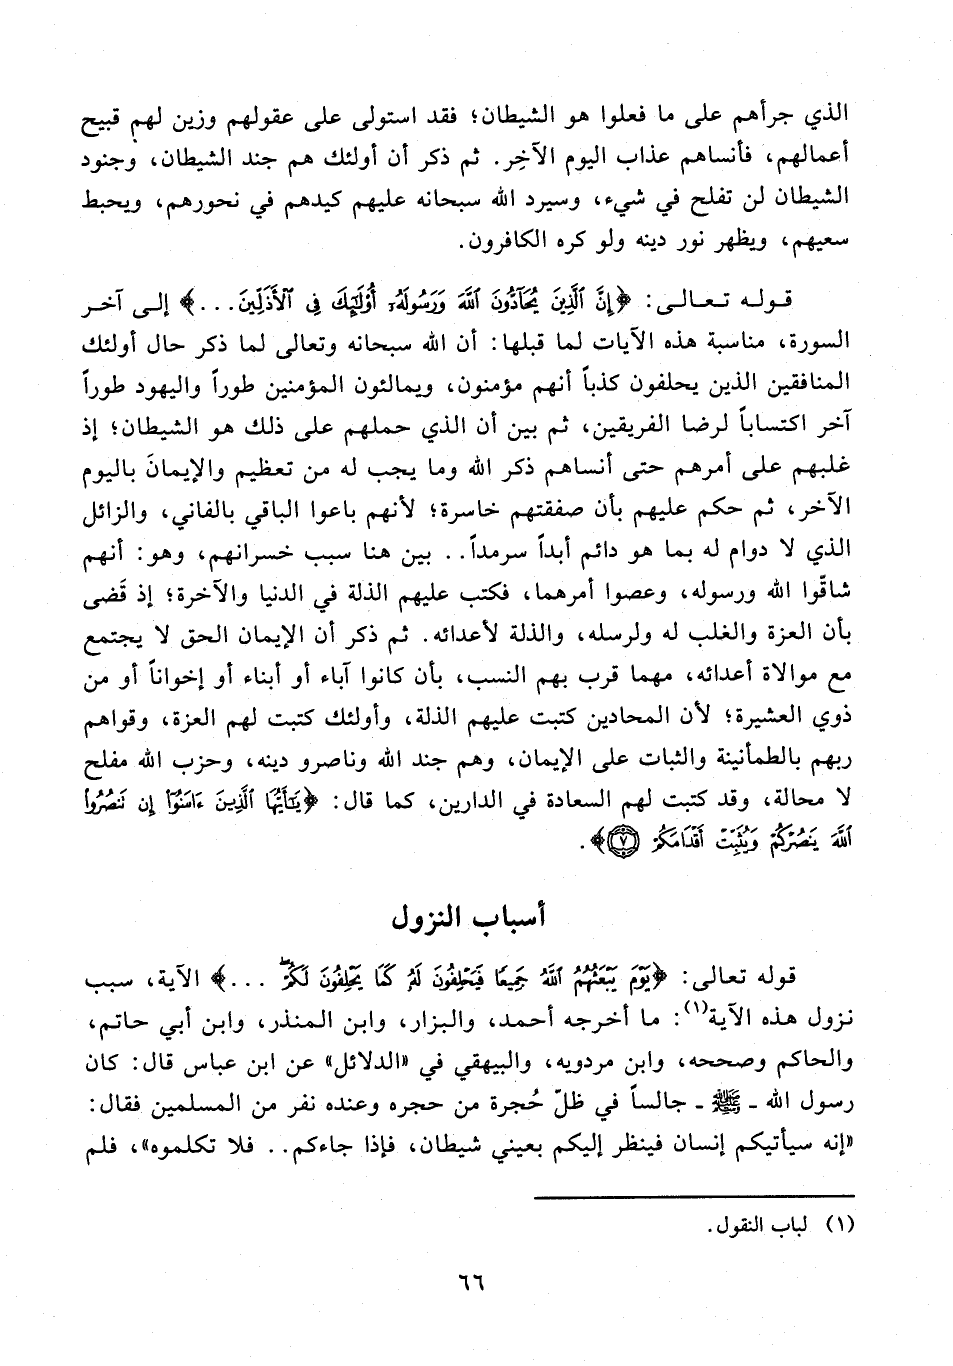 الذي جرأهم على ما فعلوا هو الشيطان؛ فقد استولى على عقولهم وزين لهم قبيح
أعمالهم، فأنساهم عذاب اليوم الآخِر. ثم ذكر أن أولئك هم جند الشيطان، وجنود
الشيطان لن تفلح في شيء، وسيرد الله سبحانه عليهم كيدهم في نحورهم، ويحبط
سعيهم، ويظهر نور دينه ولو كره الكافرون.
قوله تعالى: ﴿إِنَّ ٱلَّذِينَ يُحَآدُّونَ ٱللَّهَ وَرَسُولَهُۥٓ أُوْلَٰٓئِكَ فِى ٱلْأَذَلِّينَ...﴾ إلى آخر
السورة، مناسبة هذه الآيات لما قبلها: أن الله سبحانه وتعالى لما ذكر حال أولئك
المنافقين الذين يحلفون كذباً أنهم مؤمنون، ويمالئون المؤمنين طوراً واليهود طوراً
آخر اكتساباً لرضا الفريقين، ثم بين أن الذي حملهم على ذلك هو الشيطان؛ إذ
غلبهم على أمرهم حتى أنساهم ذكر الله وما يجب له من تعظيم والإيمانَ باليوم
الآخر، ثم حكم عليهم بأن صفقتهم خاسرة؛ لأنهم باعوا الباقي بالفاني، والزائل
الذي لا دوام له بما هو دائم أبداً سرمداً.. بين هنا سبب خسرانهم، وهو: أنهم
شاقّوا الله ورسوله، وعصوا أمرهما، فكتب عليهم الذلة في الدنيا والآخرة؛ إذ قَضى
بأن العزة والغلب له ولرسله، والذلة لأعدائه. ثم ذكر أن الإيمان الحق لا يجتمع
مع موالاة أعدائه، مهما قرب بهم النسب، بأن كانوا آباء أو أبناء أو إخواناً أو من
ذوي العشيرة؛ لأن المحادين كتبت عليهم الذلة، وأولئك كتبت لهم العزة، وقواهم
ربهم بالطمأنينة والثبات على الإيمان، وهم جند الله وناصرو دينه، وحزب الله مفلح
لا محالة، وقد كتبت لهم السعادة في الدارين، كما قال: ﴿يَٰٓأَيُّهَا ٱلَّذِينَ ءَامَنُوٓا۟ إِن تَنصُرُوا۟
ٱللَّهَ يَنصُرْكُمْ وَيُثَبِّتْ أَقْدَامَكُمْ ٧﴾.
أسباب النزول
قوله تعالى: ﴿يَوْمَ يَبْعَثُهُمُ ٱللَّهُ جَمِيعًا فَيَحْلِفُونَ لَهُۥ كَمَا يَحْلِفُونَ لَكُمْ ۖ ...﴾ الآية، سبب
نزول هذه الآية(١): ما أخرجه أحمد، والبزار، وابن المنذر، وابن أبي حاتم،
والحاكم وصححه، وابن مردويه، والبيهقي في «الدلائل» عن ابن عباس قال: كان
رسول الله ـ ﷺ ـ جالساً في ظلّ حُجرة من حجره وعنده نفر من المسلمين فقال:
«إنه سيأتيكم إنسان فينظر إليكم بعيني شيطان، فإذا جاءكم.. فلا تكلموه»، فلم
(١) لباب النقول.
٦٦